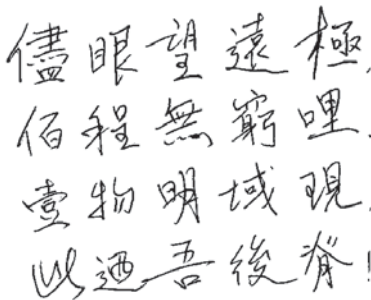 儘眼望遠極,
佰程無窮哩.
壹物明域現,
此迺吾後脊!